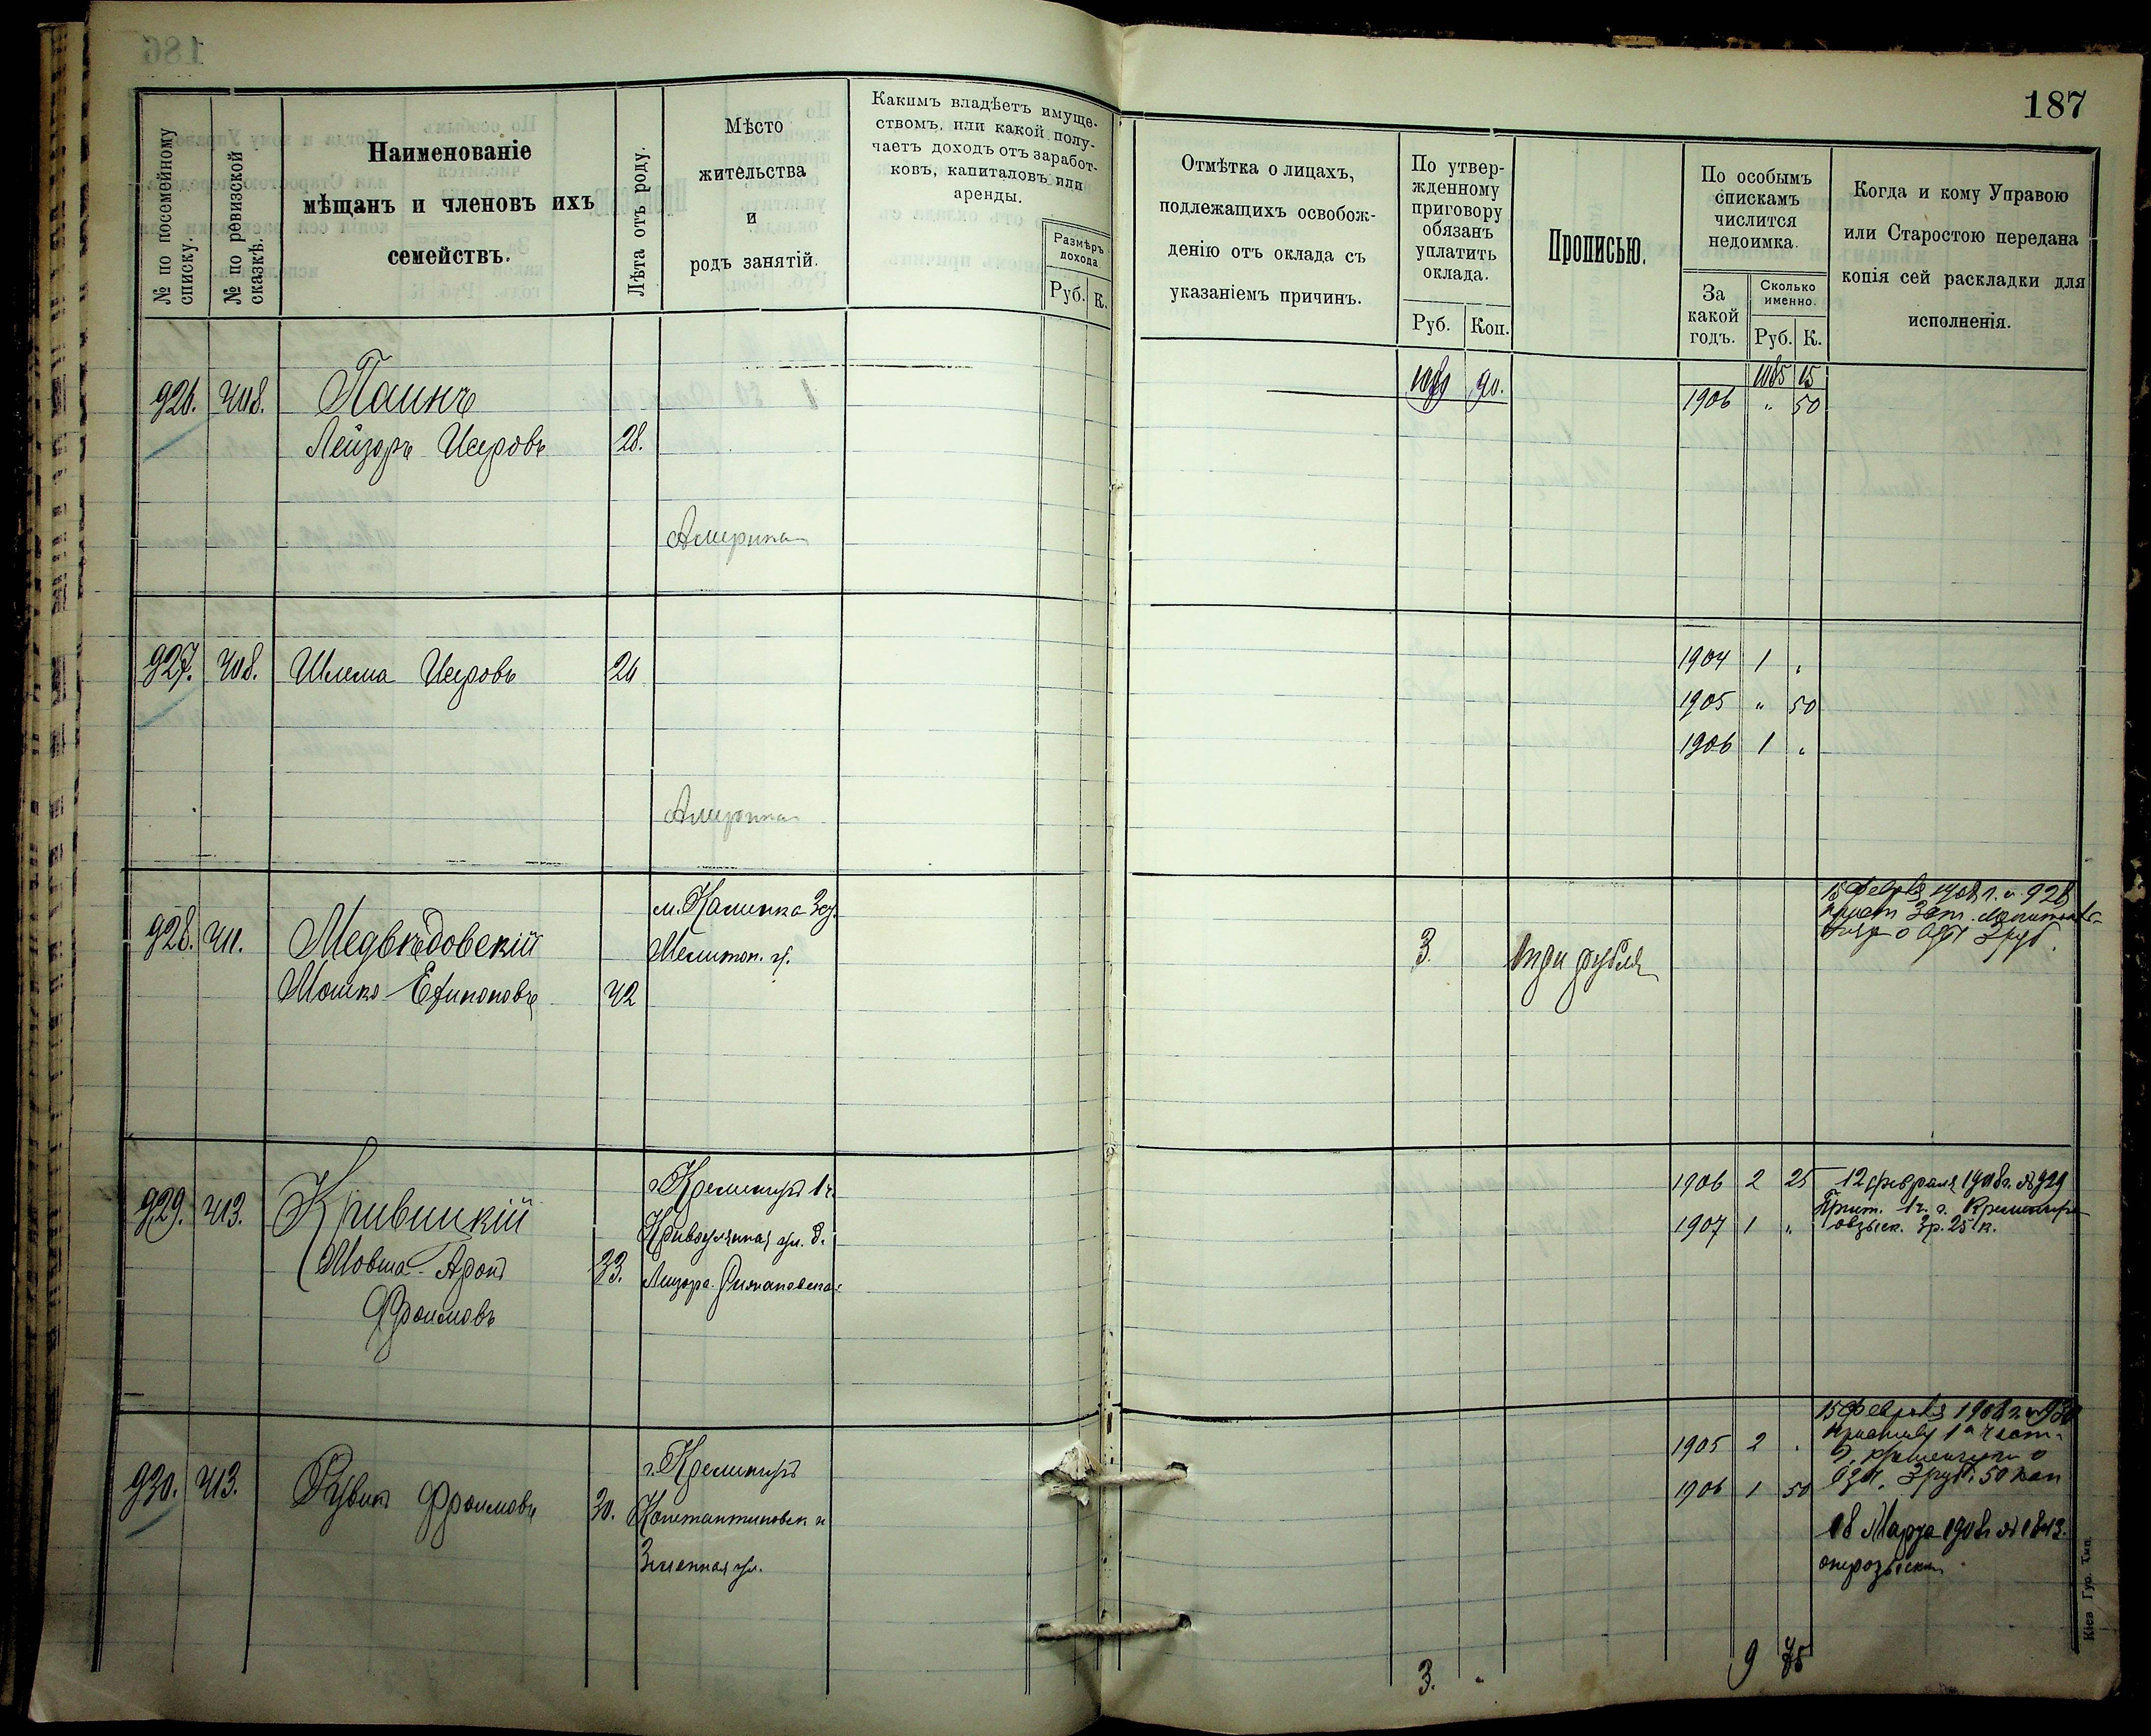 187
№ по посемейному
списку.
№ по ревизской
сказкѣ.
Наименованіе
мѣщанъ и членовъ ихъ
семействъ.
Лѣта отъ роду.
Мѣсто
жительства
и
родъ занятій.
Какимъ владѣетъ имуще-
ствомъ, или какой полу-
чаетъ доходъ отъ заработ-
ковъ, капиталовъ или
аренды.
Размѣръ
дохода
Руб. К.
Отмѣтка о лицахъ,
подлежащихъ освобож-
денію отъ оклада съ
указаніемъ причинъ.
По утвер-
жденному
приговору
обязанъ
уплатить
оклада.
Руб. Коп.
Прописью.
По особымъ
спискамъ
числится
недоимка.
За
какой
годъ.
Сколько
именно.
Руб. К.
Когда и кому Управою
или Старостою передана
копія сей раскладки для
исполненія.
90.
1085 15
926. 408. Паинъ
1906 " 50
Лейзоръ Исеровъ 28.
Америка
927. 408. Шлема Исеровъ 24
1904 1 "
1905 " 50
1906 1 "
Америка
928. 411. Медвѣдовскій
Мошко 42
м. Каминка
Мелитоп. у.
3. три рубля
929. 413. Кривицкій
Мовша-Аронъ 33.
Фроимовъ
г. Кременчугъ 1 ч.
ул. д.
1906 2 25
1907 1 "
12 февраля 1908 г. № 929
Прист. 1 ч. г. Кременчуга
о взыск. 3 р. 25 к.
930. 413. Рувинъ Фроимовъ 30.
г. Кременчугъ
Константиновск и
ул.
1905 2 "
1906 1 50
15 Февраля 1908 г. № 930
Приставу 1й части
г. Кременчуга о
взы. 3 руб. 50 коп
18 Марта 1908 г № 1843.
о розыскан
3. "
9 75
Кіев Губ. Тип.